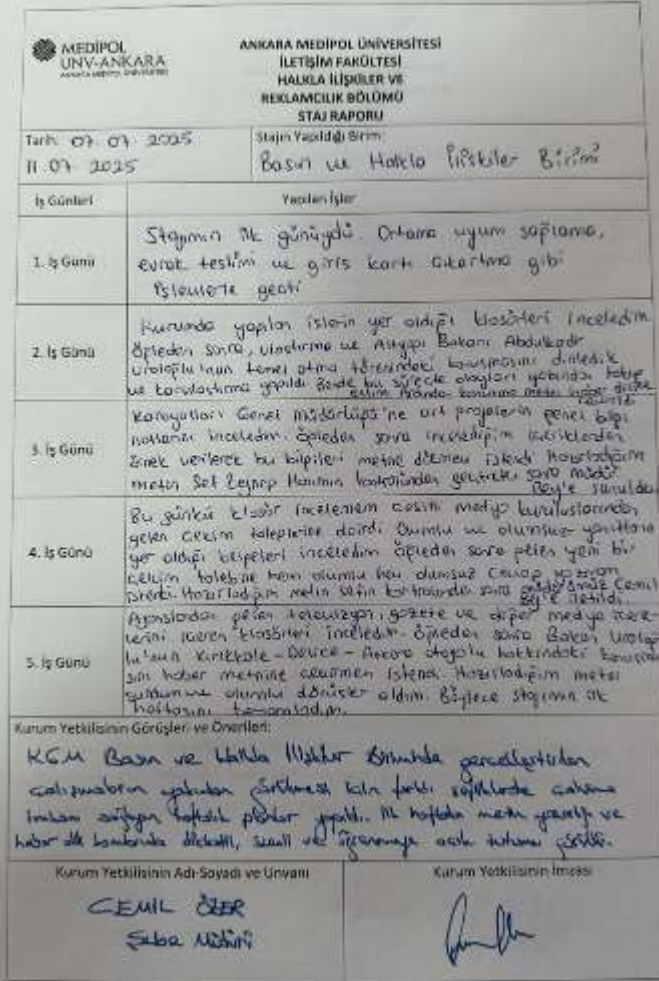 MEDİPOL
UNV-ANKARA
ANKARA MEDİPOL ÜNİVERSİTESİ
ANKARA MEDİPOL ÜNİVERSİTESİ
İLETİŞİM FAKÜLTESİ
HALKLA İLİŞKİLER VE
REKLAMCILIK BÖLÜMÜ
STAJ RAPORU
Tarih: 07.07.2025
11.07.2025
Stajın Yapıldığı Birim:
Basın ve Halkla İlişkiler Birimi
İş Günleri
Yapılan İşler
1. İş Günü
Stajımın ilk günüydü. Ortama uyum sağlama,
evrak teslimi ve giriş kartı çıkartma gibi
işlemlerle geçti
2. İş Günü
Kurumda yapılan işlerin yer aldığı klasörleri inceledim
Öğleden sonra, Ulaştırma ve Altyapı Bakanı Abdulkadir
Uraloğlu'nun temel atma törenindeki konuşmasını dinledik
ve karşılaştırma yapıldı. bu süreçte olayları yakından takip
ettim. konuşma metni haber diline
3. İş Günü
Karayolları Genel Müdürlüğü'ne ait projelerin genel bilgi
notlarını inceledim. Öğleden sonra incelediğim içeriklerden
örnek verilerek bu bilgileri metne dökmem istendi. Hazırladığım
metin Şef Zeynep Hanımın kontrolünden geçtikten sonra müdür
Bey'e sunuldu.
4. İş Günü
Bu günkü klasör incelemem çeşitli medya kuruluşlarından
gelen çekim taleplerine dairdi. Olumlu ve olumsuz yanıtların
yer aldığı belgeleri inceledim. Öğleden sonra gelen yeni bir
çekim talebine hem olumlu hem olumsuz cevap yazmam
istendi. Hazırladığım metin şefin kontrolünden sonra müdürümüz Cemil
Bey'e iletildi.
5. İş Günü
Ajanslardan gelen televizyon, gazete ve diğer medya içerik-
lerini içeren klasörleri inceledim. Öğleden sonra Bakan Uraloğ-
lu'nun Kırıkkale-Delice-Ankara otoyolu hakkındaki konuşma-
sını haber metnine çevirmem istendi. Hazırladığım metni
sundum ve olumlu dönüşler aldım. Böylece stajımın ilk
haftasını tamamladım.
Kurum Yetkilisinin Görüşleri ve Önerileri:
KGM Basın ve Halkla İlişkiler Biriminde gerçekleştirilen
çalışmaların yakından görülmesi için farklı çalışma
imkanı sağlayan haftalık planlar yapıldı. İlk haftada metin ve
haber dili konularında dikkatli, ve öğrenmeye açık tutumu görüldü.
Kurum Yetkilisinin Adı-Soyadı ve Unvanı
Kurum Yetkilisinin İmzası
CEMİL ÖZER
Şube Müdürü